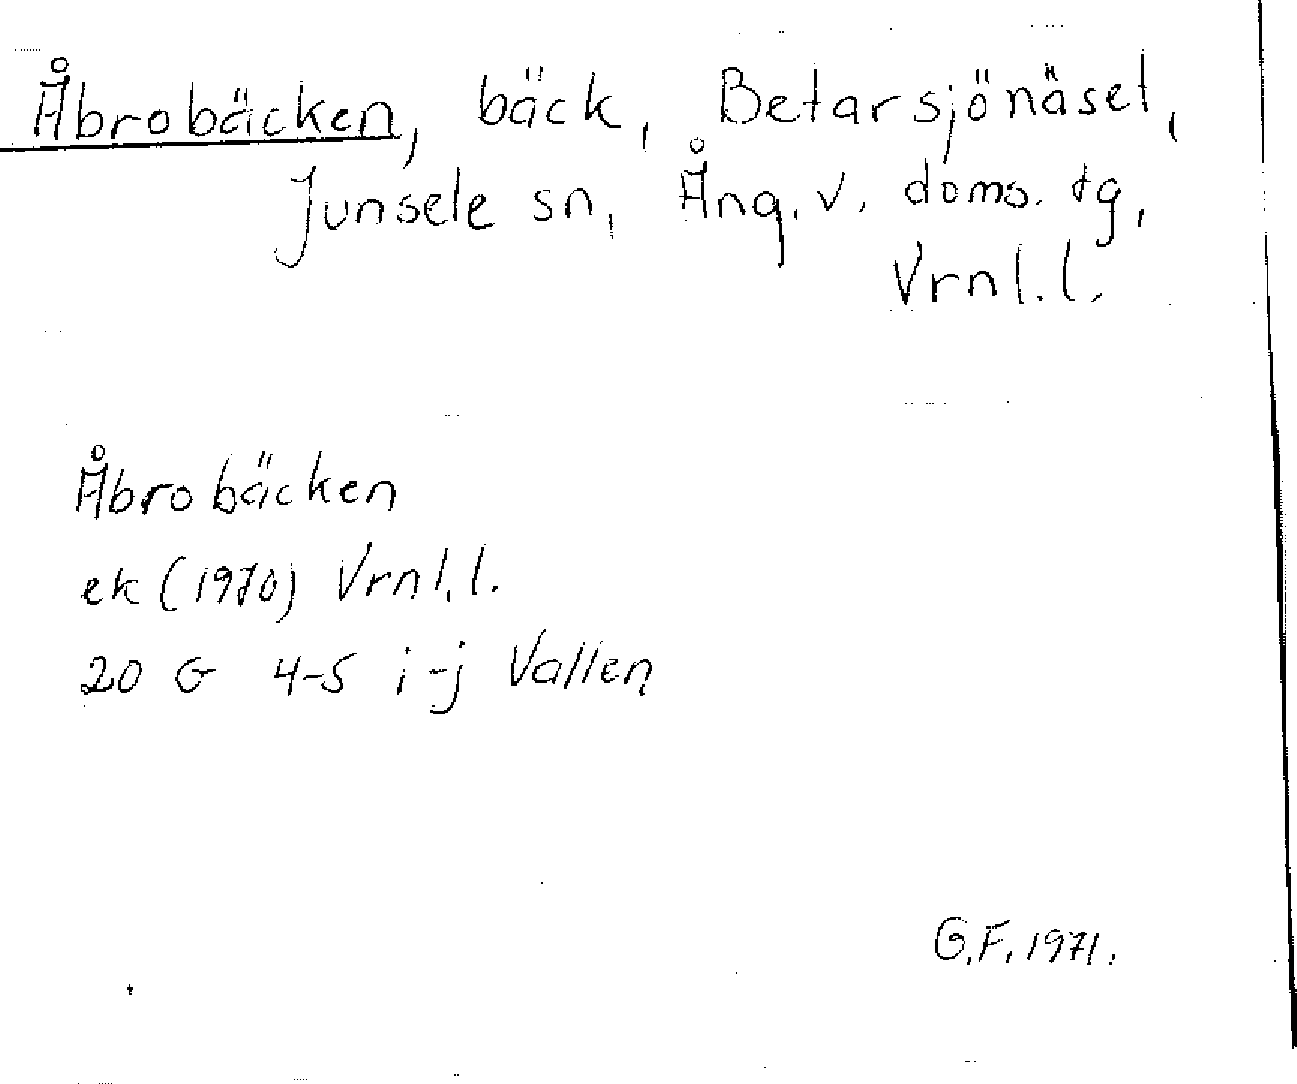 Åbrobäcken, bäck, Betarsjönäset,
Junsele sn, Ång. v. doms. tg,
Vrnl.l.
Åbrobäcken
ek (1970) Vrnl.l.
20 G 4-5 i-j Vallen
G.F. 1971.